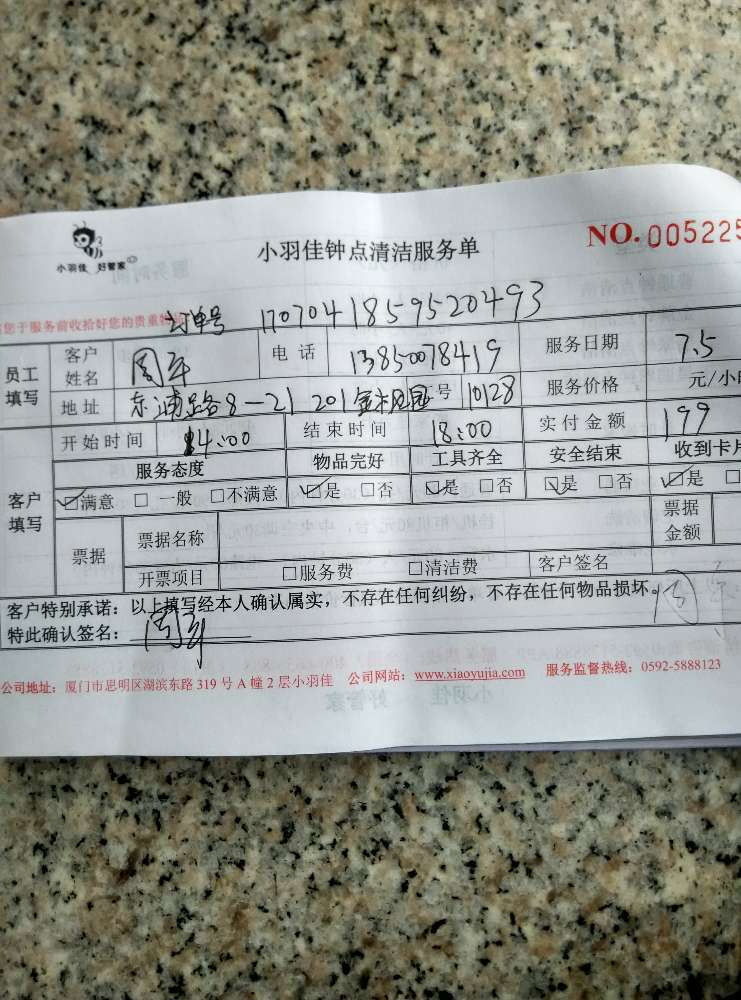 小羽佳 好管家
小羽佳钟点清洁服务单
NO. 005225
您于服务前收拾好您的贵重物
订单号 170704185952 0493
员工填写 客户姓名 周平 电话 13850078419 服务日期 7.5
地址 东浦路8-21 201 号 10128 服务价格 元/小
客户填写 开始时间 14:00 结束时间 18:00 实付金额 199
服务态度 物品完好 工具齐全 安全结束 收到卡片
☑满意 □一般 □不满意 ☑是 □否 ☑是 □否 ☑是 □否 ☑是 □
票据 票据名称 票据金额
开票项目 □服务费 □清洁费 客户签名
客户特别承诺：以上填写经本人确认属实，不存在任何纠纷，不存在任何物品损坏。
特此确认签名：周平
公司地址：厦门市思明区湖滨东路 319 号 A 幢 2 层小羽佳 公司网站：www.xiaoyujia.com 服务监督热线：0592-5888123